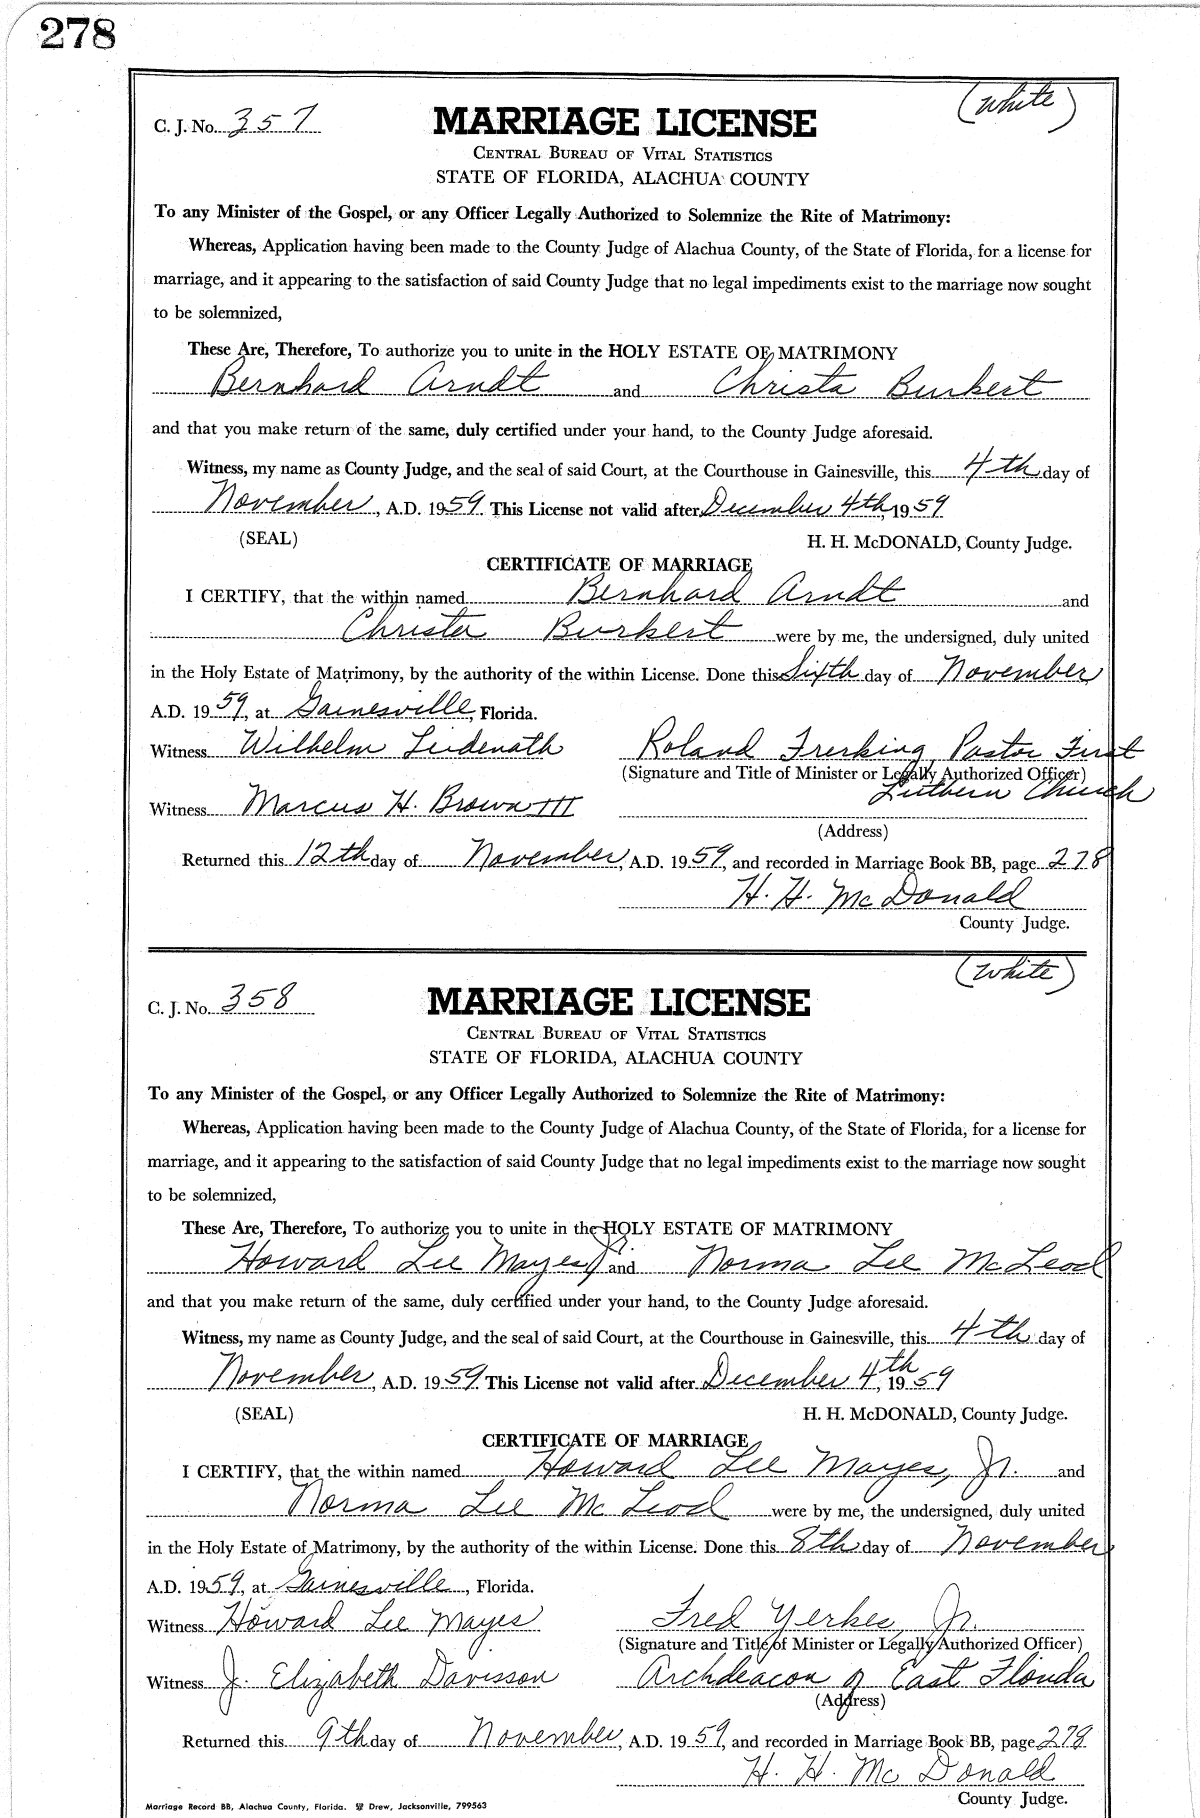 278
(White)
C. J. No. 357 MARRIAGE LICENSE
CENTRAL BUREAU OF VITAL STATISTICS
STATE OF FLORIDA, ALACHUA COUNTY
To any Minister of the Gospel, or any Officer Legally Authorized to Solemnize the Rite of Matrimony:
Whereas, Application having been made to the County Judge of Alachua County, of the State of Florida, for a license for
marriage, and it appearing to the satisfaction of said County Judge that no legal impediments exist to the marriage now sought
to be solemnized,
These Are, Therefore, To authorize you to unite in the HOLY ESTATE OF MATRIMONY
Bernhard Arndt and Christa Burkert
and that you make return of the same, duly certified under your hand, to the County Judge aforesaid.
Witness, my name as County Judge, and the seal of said Court, at the Courthouse in Gainesville, this 4th day of
November, A.D. 1959. This License not valid after December 4th, 1959
(SEAL) H. H. McDONALD, County Judge.
CERTIFICATE OF MARRIAGE
I CERTIFY, that the within named Bernhard Arndt and
Christa Burkert were by me, the undersigned, duly united
in the Holy Estate of Matrimony, by the authority of the within License. Done this Sixth day of November,
A.D. 1959, at Gainesville, Florida.
Witness Wilhelm Roland Frerking Pastor First
(Signature and Title of Minister or Legally Authorized Officer)
Luthern Church
Witness Marcus H. Brown III
(Address)
Returned this 12th day of November, A.D. 1959, and recorded in Marriage Book BB, page 278
H. H. McDonald
County Judge.
(White)
C. J. No. 358 MARRIAGE LICENSE
CENTRAL BUREAU OF VITAL STATISTICS
STATE OF FLORIDA, ALACHUA COUNTY
To any Minister of the Gospel, or any Officer Legally Authorized to Solemnize the Rite of Matrimony:
Whereas, Application having been made to the County Judge of Alachua County, of the State of Florida, for a license for
marriage, and it appearing to the satisfaction of said County Judge that no legal impediments exist to the marriage now sought
to be solemnized,
These Are, Therefore, To authorize you to unite in the HOLY ESTATE OF MATRIMONY
Howard Lee Mayes, Jr. and Norma Lee McLeod
and that you make return of the same, duly certified under your hand, to the County Judge aforesaid.
Witness, my name as County Judge, and the seal of said Court, at the Courthouse in Gainesville, this 4th day of
November, A.D. 1959. This License not valid after December 4th, 1959
(SEAL) H. H. McDONALD, County Judge.
CERTIFICATE OF MARRIAGE
I CERTIFY, that the within named Howard Lee Mayes, Jr. and
Norma Lee McLeod were by me, the undersigned, duly united
in the Holy Estate of Matrimony, by the authority of the within License. Done this 8th day of November
A.D. 1959, at Gainesville, Florida.
Witness Howard Lee Mayes Fred Yerkes, Jr.
(Signature and Title of Minister or Legally Authorized Officer)
Witness J. Elizabeth Davisson Archdeacon of East Florida
(Address)
Returned this 9th day of November, A.D. 1959, and recorded in Marriage Book BB, page 278
H. H. McDonald
County Judge.
Marriage Record BB, Alachua County, Florida. Drew, Jacksonville, 799563